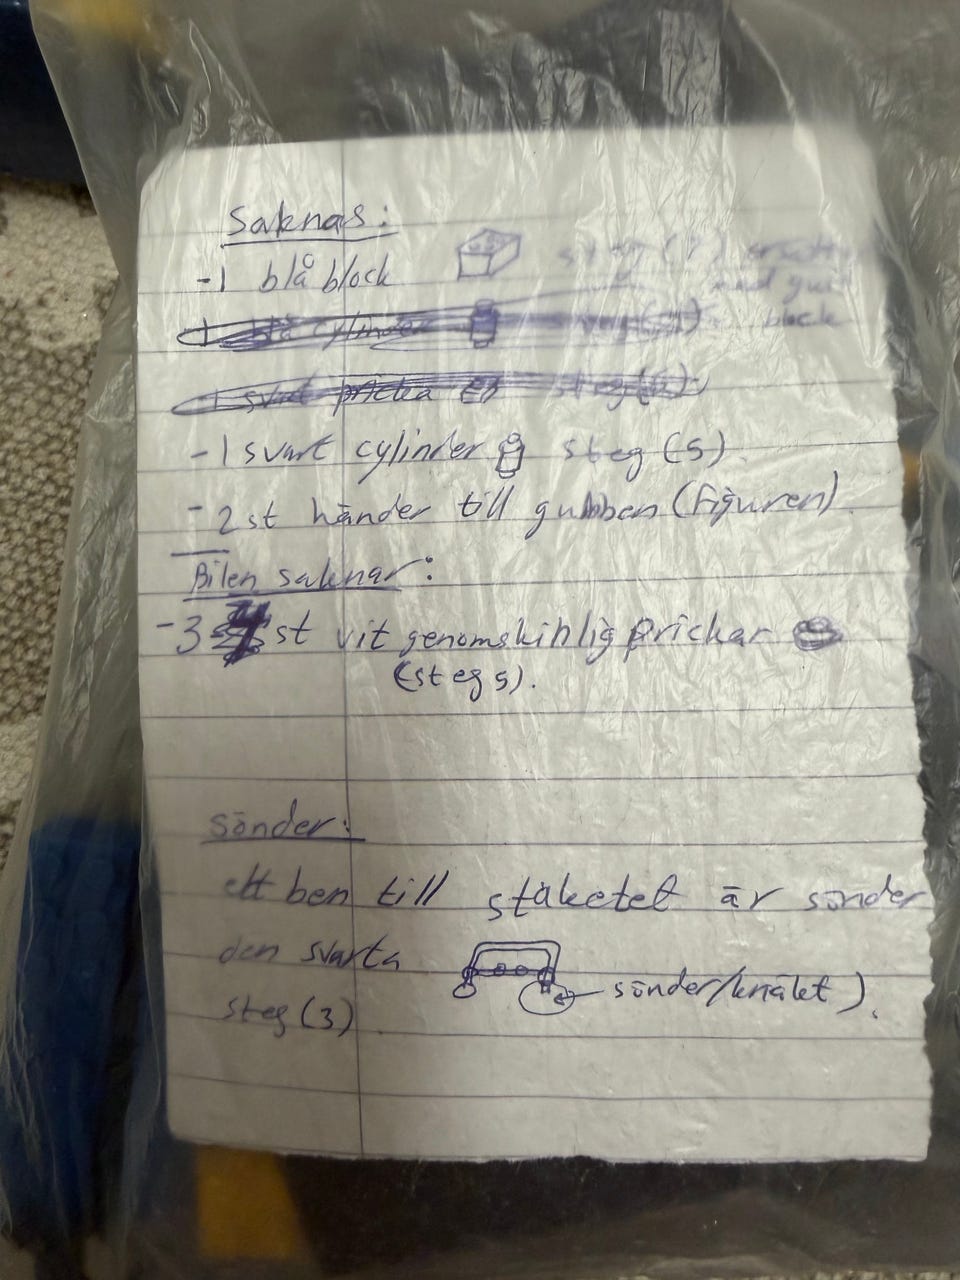 Saknas:
-1 blå block steg (7) ersätts
med gult
block
1 blå cylinder
-1 svart pricka steg (6)
-1 svart cylinder steg (5).
-2st händer till gubben (figuren).
Bilen saknar:
-3 st vit genomskinlig prickar
(steg 5).
sönder:
ett ben till stäketet är sönder
den svarta
sönder/knäkt).
steg (3).